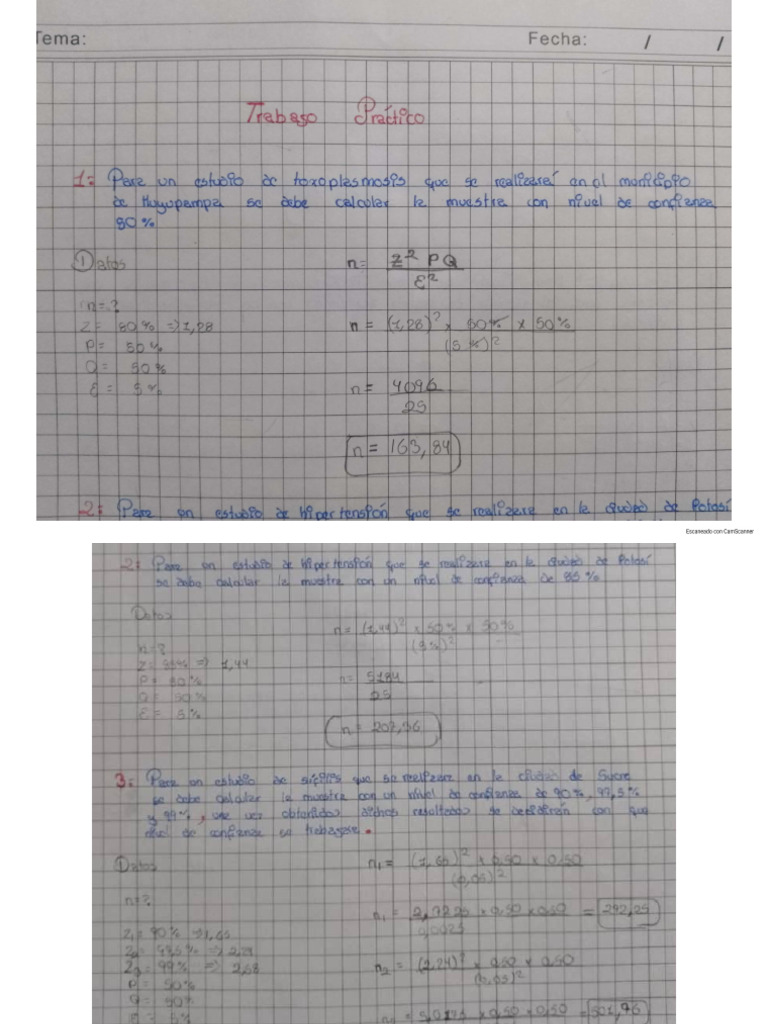 Tema: Fecha: / /
Trabajo Práctico
1: Para un estudio de toxoplasmosis que se realizará en el municipio
de Huyupampa se debe calcular la muestra con nivel de confianza
80%
① Datos
n = Z² PQ / ε²
n = ?
Z = 80% ⇒ 1,28
n = (1,28)² x 50% x 50% / (5%)²
P = 50%
Q = 50%
ε = 5%
n = 4096 / 25
n = 163,84
2: Para un estudio de hipertensión que se realizara en la ciudad de Potosí
Escaneado con CamScanner
2: Para un estudio de hipertensión que se realizara en la ciudad de Potosí
se debe calcular la muestra con un nivel de confianza de 85%
Datos
n = (1,44)² x 50% x 50% / (5%)²
n = ?
Z = 85% ⇒ 1,44
P = 50%
n = 5184 / 25
Q = 50%
ε = 5%
n = 207,36
3: Para un estudio de sífilis que se realizara en la ciudad de Sucre
se debe calcular la muestra con un nivel de confianza de 90%, 97,5%
y 99%, una vez obtenidos dichos resultados se decidirán con que
nivel de confianza se trabajara.
① Datos
n₁ = (1,65)² x 0,50 x 0,50 / (0,05)²
n = ?
n₁ = 2,7225 x 0,50 x 0,50 / 0,0025 = 292,25
Z₁ = 90% ⇒ 1,65
Z₂ = 97,5% ⇒ 2,24
Z₃ = 99% ⇒ 2,58
n₂ = (2,24)² x 0,50 x 0,50 / (0,05)²
P = 50%
Q = 50%
ε = 5%
n₂ = 5,0176 x 0,50 x 0,50 = 501,76